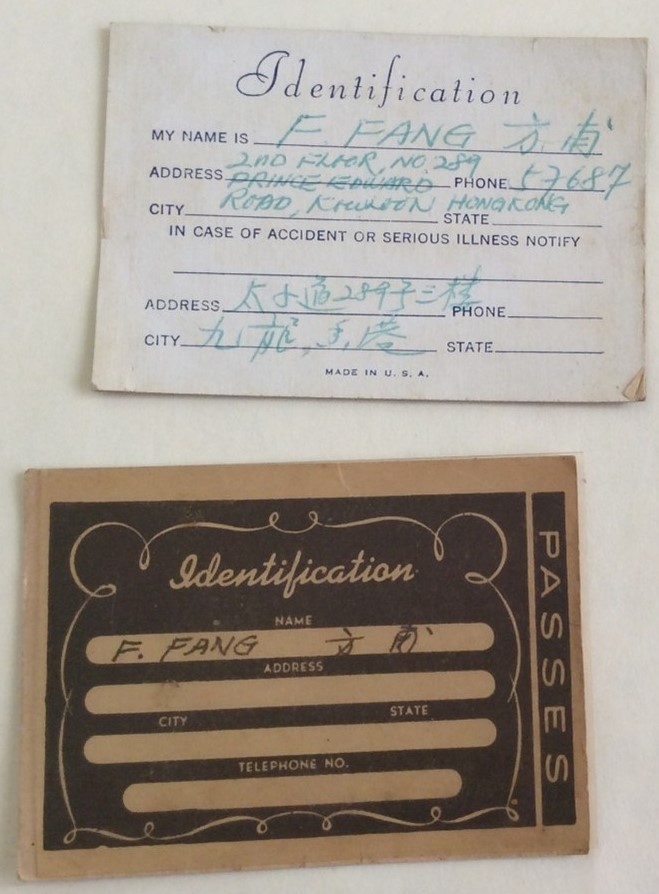 Identification
MY NAME IS F. FANG 方甫
ADDRESS 2ND FLOOR, NO. 289
PRINCE EDWARD PHONE 57687
CITY ROAD, KOWLOON HONGKONG STATE
IN CASE OF ACCIDENT OR SERIOUS ILLNESS NOTIFY
ADDRESS 太子道289号三楼 PHONE
CITY 九龍,香港 STATE
MADE IN U. S. A.
Identification
NAME
F. FANG 方甫
ADDRESS
CITY STATE
TELEPHONE NO.
PASSES